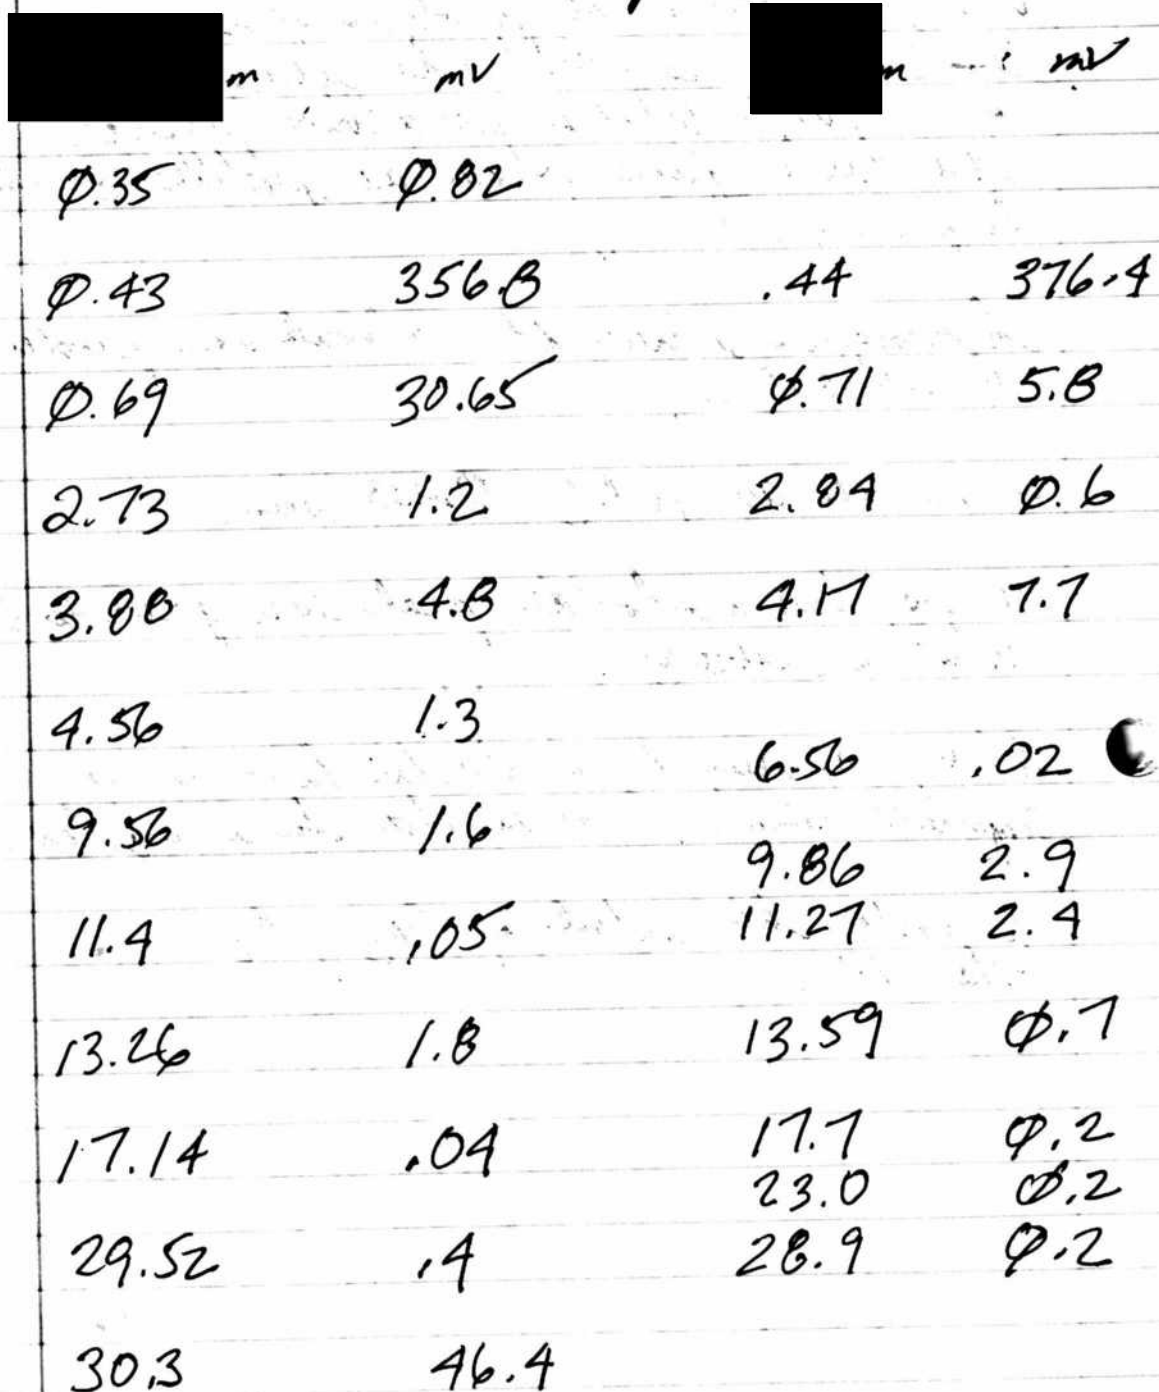 m mV m mV
0.35 0.82
0.43 356.8 .44 376.4
0.69 30.65 0.71 5.8
2.73 1.2 2.84 0.6
3.88 4.8 4.17 7.7
4.56 1.3
6.56 .02
9.56 1.6
9.86 2.9
11.4 .05 11.27 2.4
13.26 1.8 13.59 0.7
17.14 .04 17.7 0.2
23.0 0.2
29.52 .4 28.9 0.2
30.3 46.4